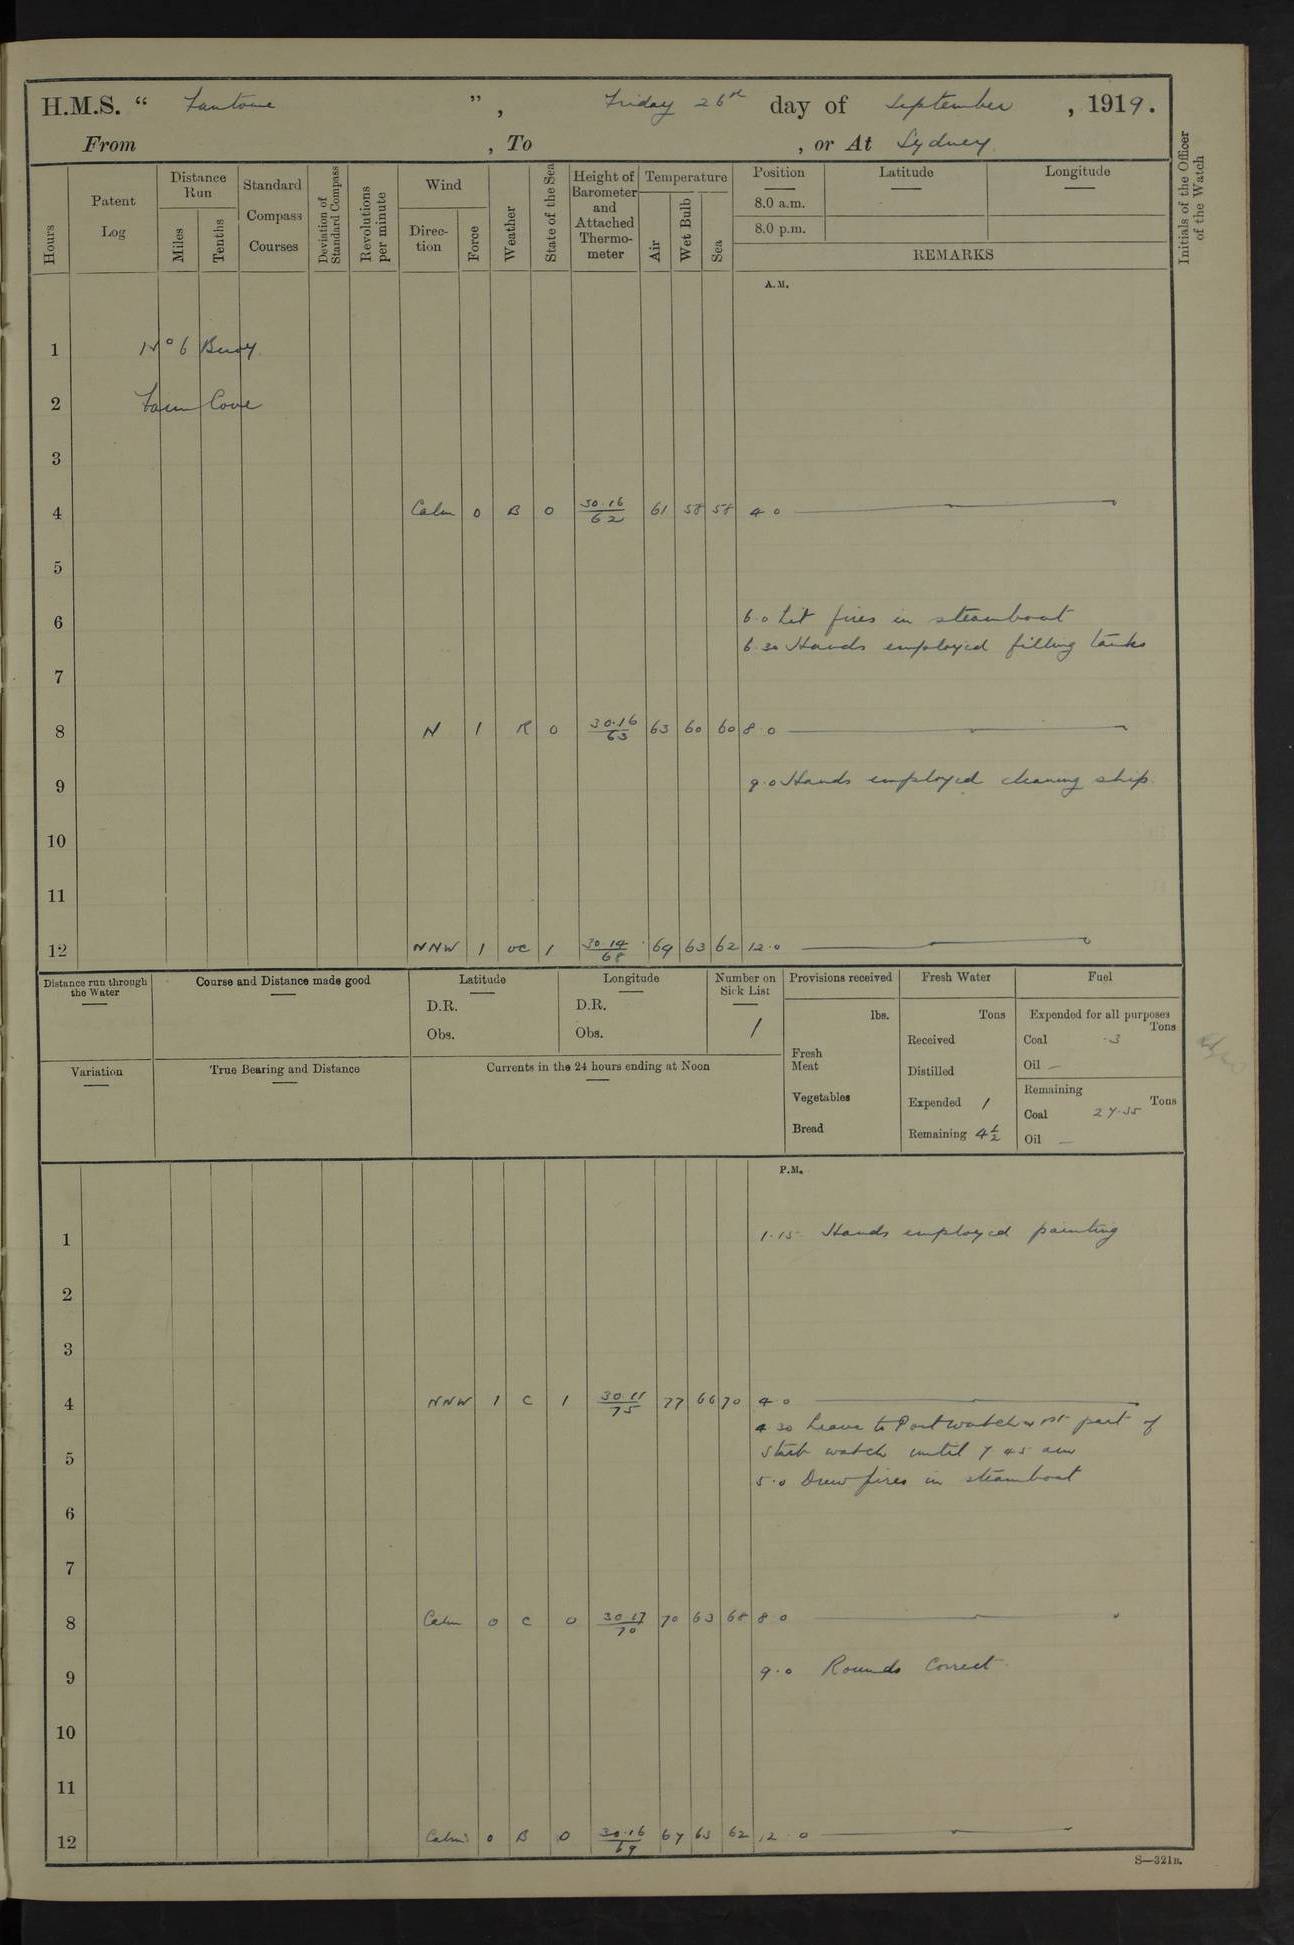 H.M.S. “ Fantome ”, Friday 26th day of September, 1919.
From , To , or At Sydney
Hours
Patent Log
Distance Run
Miles
Tenths
Standard Compass Courses
Deviation of Standard Compass
Revolutions per minute
Wind
Direction
Force
Weather
State of the Sea
Height of Barometer and Attached Thermometer
Temperature
Air
Wet Bulb
Sea
Position
8.0 a.m.
8.0 p.m.
Latitude
Longitude
REMARKS
Initials of the Officer of the Watch
A.M.
1 No 6 Buoy
2 Farm Cove
3
4 Calm 0 B 0 30.16/62 61 58 58 4 0
5
6 6.0 Lit fires in steamboat
6.30 Hands employed filling tanks
7
8 N 1 R 0 30.16/63 63 60 60 8 0
9 9.0 Hands employed cleaning ship
10
11
12 NNW 1 OC 1 30.14/68 69 63 62 12.0
Distance run through the Water
Course and Distance made good
Latitude
D.R.
Obs.
Longitude
D.R.
Obs.
Number on Sick List
1
Provisions received
lbs.
Fresh Meat
Vegetables
Bread
Fresh Water
Tons
Received
Distilled
Expended 1
Remaining 4½
Fuel
Expended for all purposes
Tons
Coal .3
Oil –
Remaining
Tons
Coal 27.35
Oil –
Variation
True Bearing and Distance
Currents in the 24 hours ending at Noon
P.M.
1 1.15 Hands employed painting
2
3
4 NNW 1 C 1 30 11/75 77 66 70 4 0
4 30 Leave to Port watch & 1st part of
5 Starb watch until 7 45 am
5.0 Drew fires in steamboat
6
7
8 Calm 0 C 0 30 17/70 70 63 68 8 0
9 9.0 Rounds Correct
10
11
12 Calm 0 B 0 30.16/69 67 63 62 12.0
S—321B.